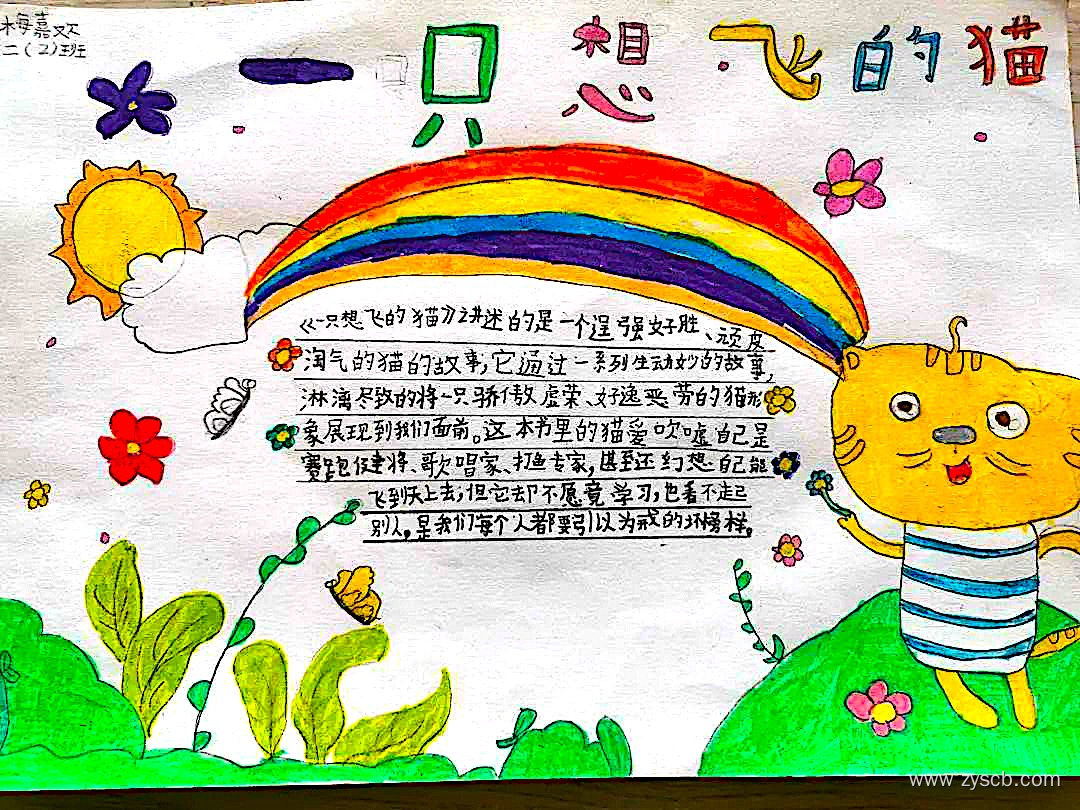 梅嘉欢
二(2)班
一只想飞的猫
《一只想飞的猫》讲述的是一个逞强好胜、顽皮
淘气的猫的故事,它通过一系列生动妙的故事,
淋漓尽致的将一只骄傲虚荣、好逸恶劳的猫形
象展现到我们面前。这本书里的猫爱吹嘘自己是
赛跑健将、歌唱家、打鱼专家,甚至还幻想自己能
飞到天上去,但它却不愿意学习,也看不起
别人,是我们每个人都要引以为戒的坏榜样。
www.zyscb.com